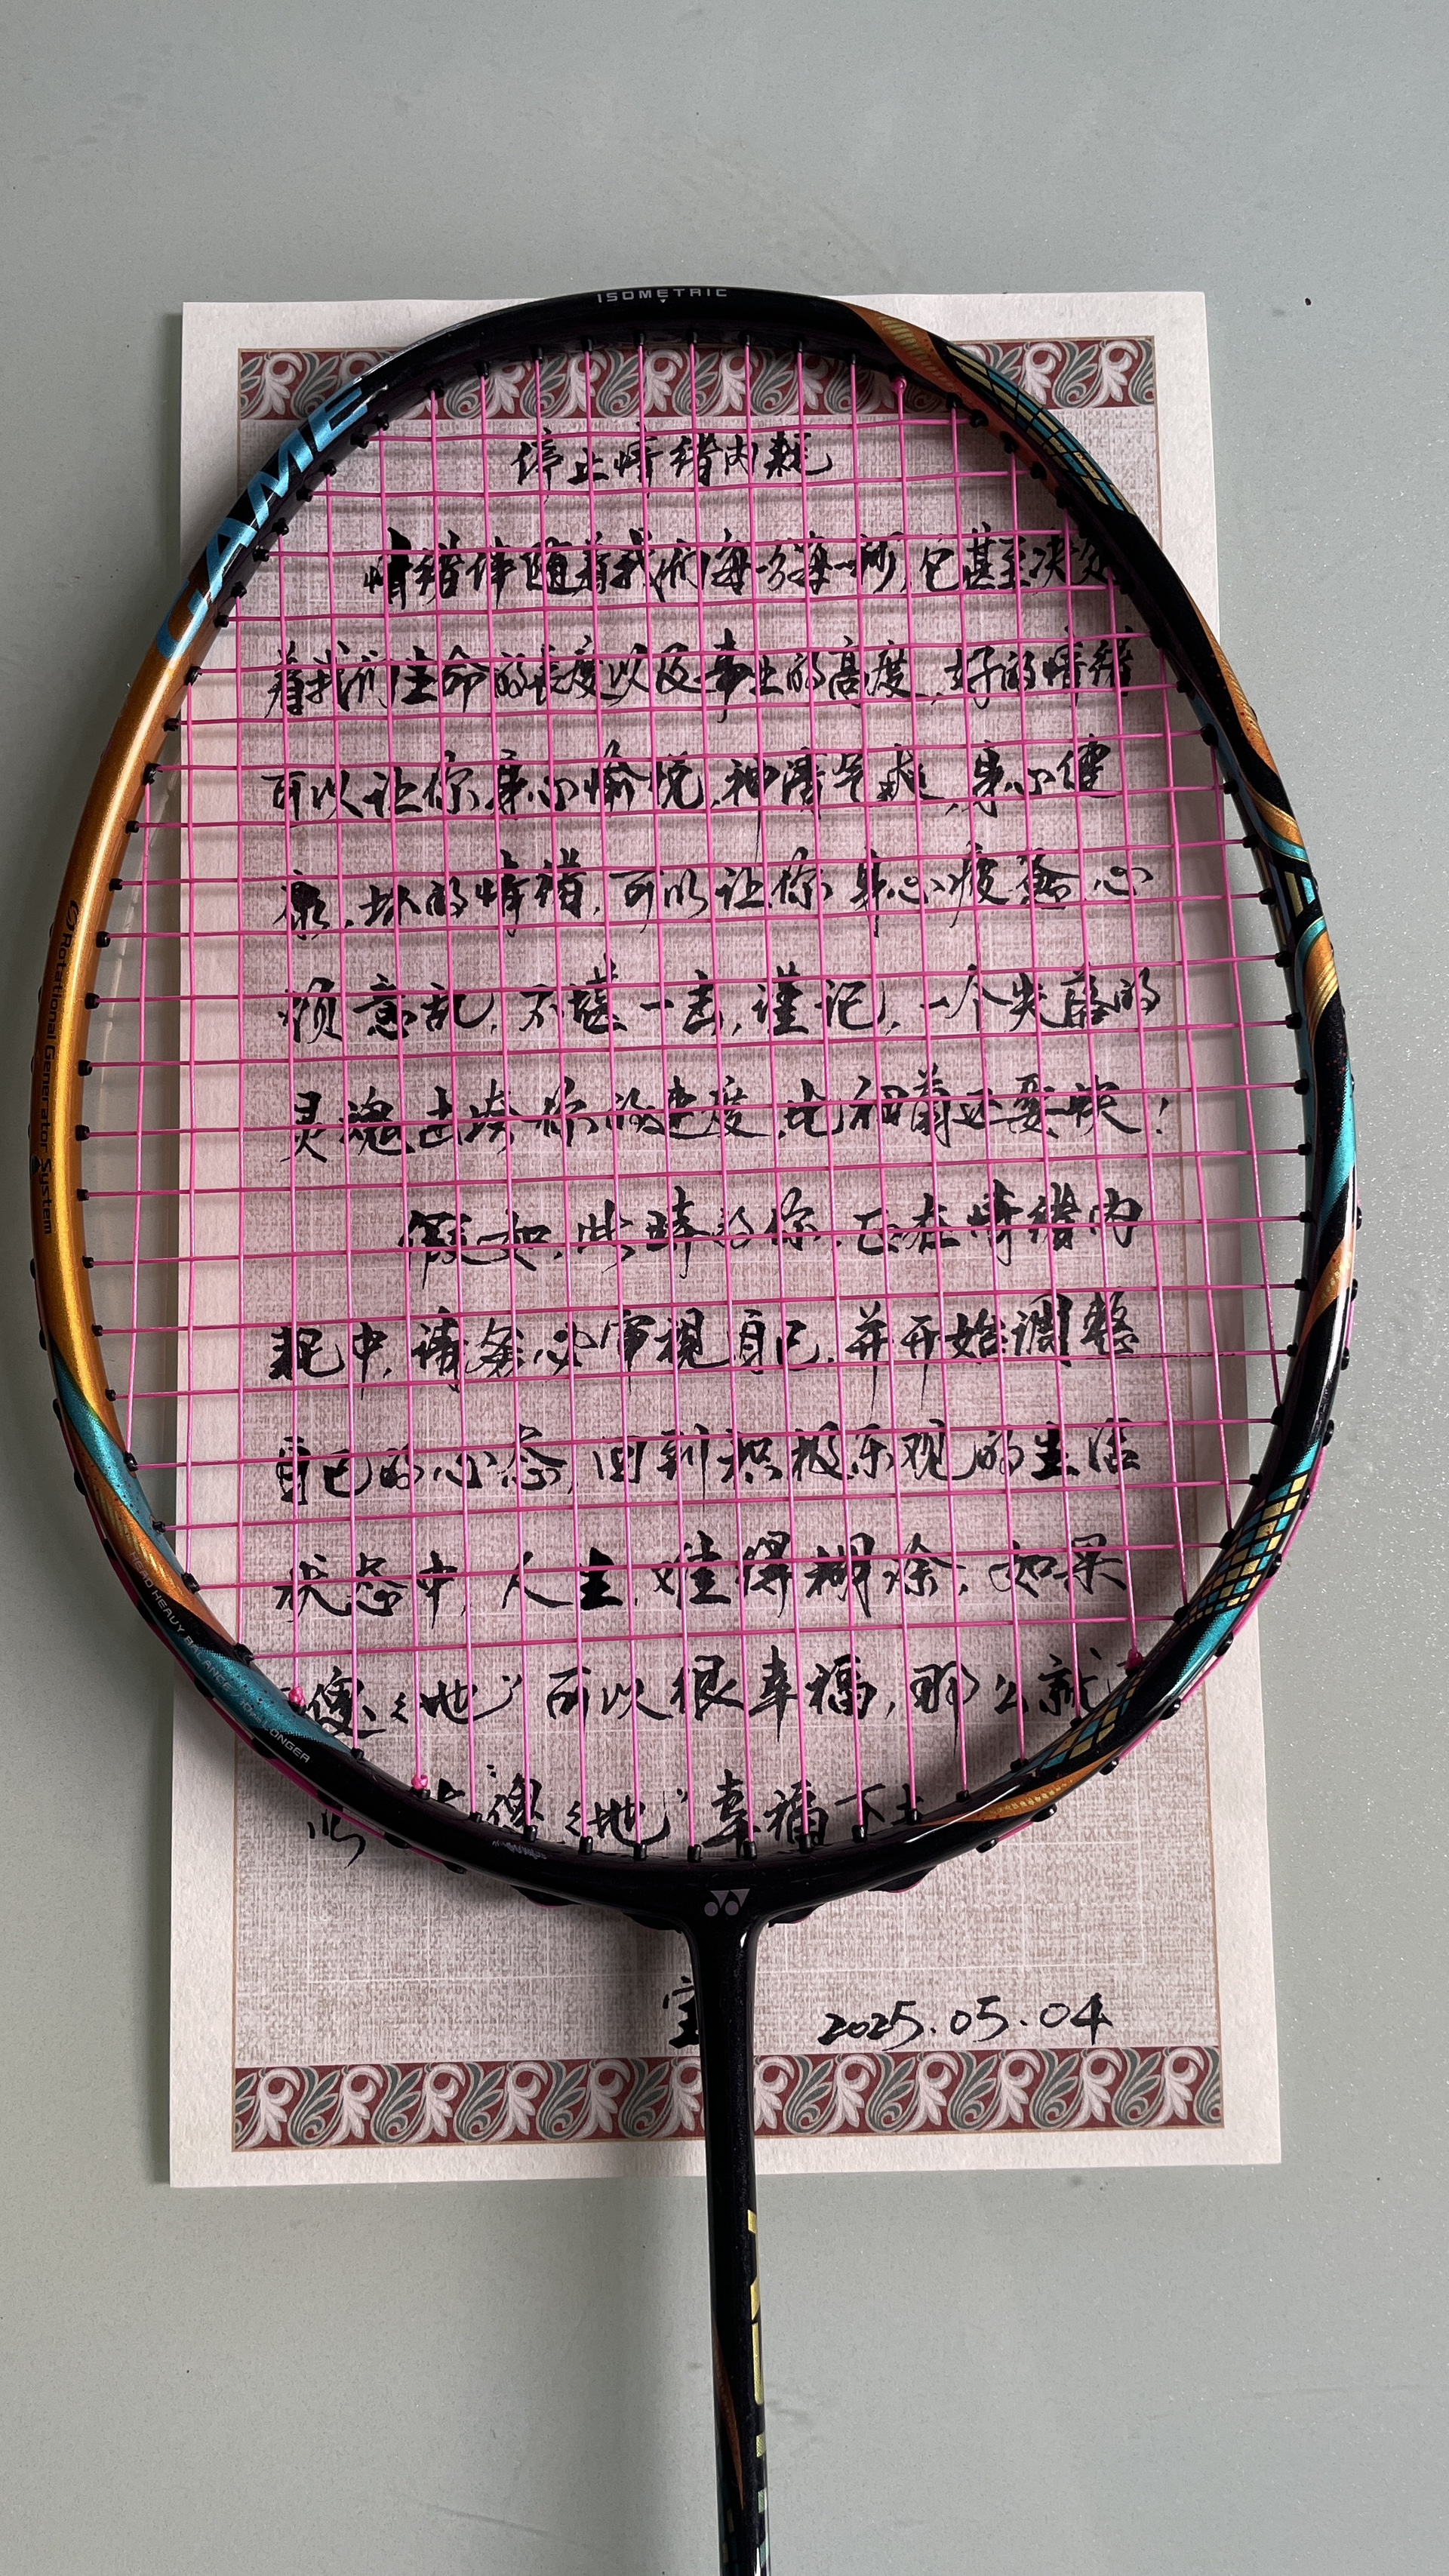 ISOMETRIC
AME
Rotational Generator System
HEAD HEAVY BALANCE
LONGER
停止情绪内耗
情绪伴随着我们每一分每一秒,它甚至决定
着我们生命的长度以及事业的高度,好的情绪
可以让你身心愉悦,神清气爽,身心健
康,坏的情绪,可以让你身心疲惫心
烦意乱,不堪一击,谨记,一个失落的
灵魂击垮你的速度,比细菌还要快!
假如,此时的你,正在情绪内
耗中,请务必审视自己,并开始调整
自己的心态,回到积极乐观的生活
状态中,人生,难得糊涂,如果
傻傻地”可以很幸福,那么就
“傻傻地”幸福下去
2025.05.04